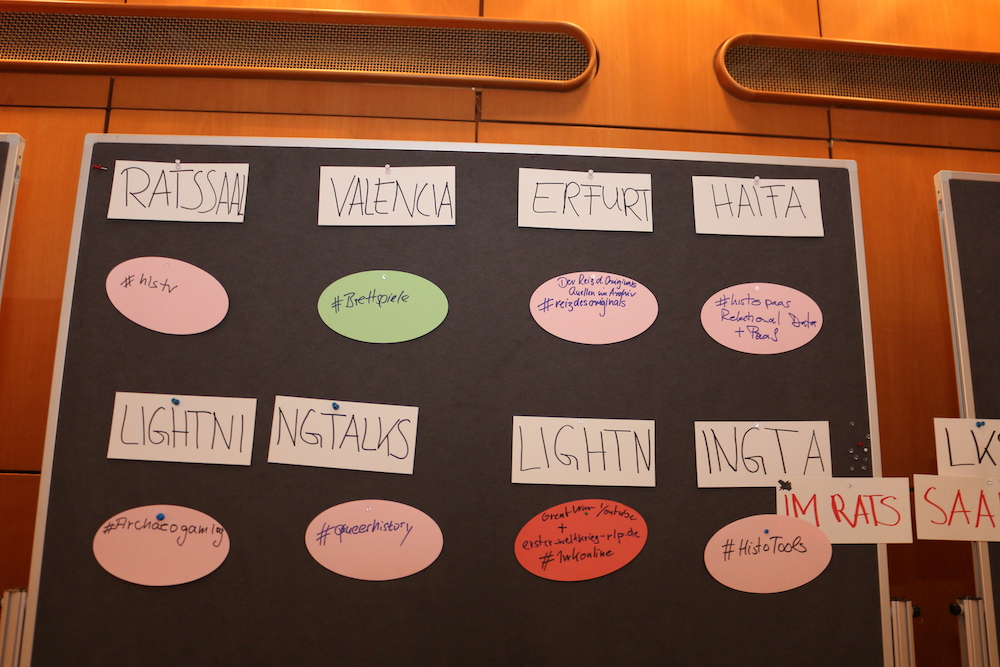 RATSSAAL
VALENCIA
ERFURT
HAIFA
#histv
#Brettspiele
Der Reiz d. Originals
Quellen im Archiv
#reizdesoriginals
#histopaas
Relational Data
+ PaaS
LIGHTNI
NGTALKS
LIGHTN
INGTA
LKS
IM RATS
SAA
#Archaeogaming
#Queerhistory
Great War Youtube
+
erster-weltkrieg-rlp.de
#1wkonline
#HistoTools